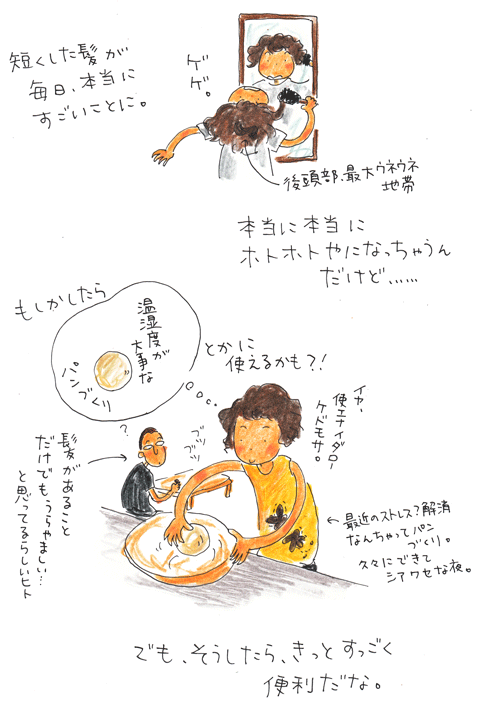 短くした髪が
毎日、本当に
すごいことに。
ゲゲ。
後頭部、最大ウネウネ
地帯
本当に本当に
ホトホトやになっちゃうん
だけど……
もしかしたら
温湿度が
大事な
パンづくり
とかに
使えるかも?!
イヤ、
使エナイダロー
ケドモサ。
?
ブツ
ブツ
髪があること
だけでもうらやましい…
と思ってるらしいヒト
最近のストレス?解消
なんちゃってパン
づくり。
久々にできて
シアワセな夜。
でも、そうしたら、きっとすっごく
便利だな。